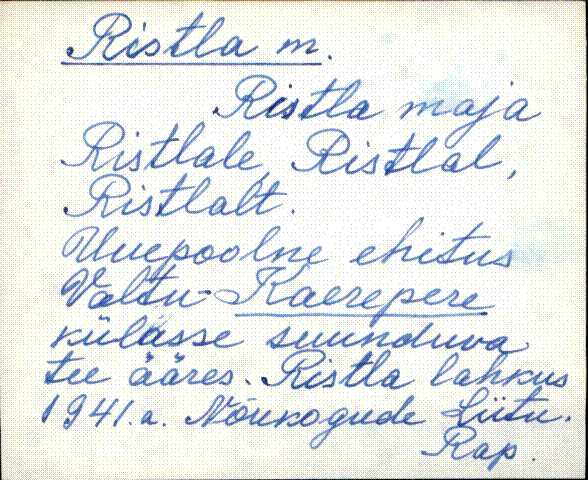 Ristla m.
Ristla maja
Ristlale, Ristlal,
Ristlalt.
Uuepoolne ehitus
Valtu-Kaerepere
külasse suunduva
tee ääres. Ristla lahkus
1941.a. Nõukogude Liitu.
Rap.